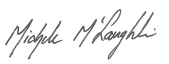 Michele McLaughlin